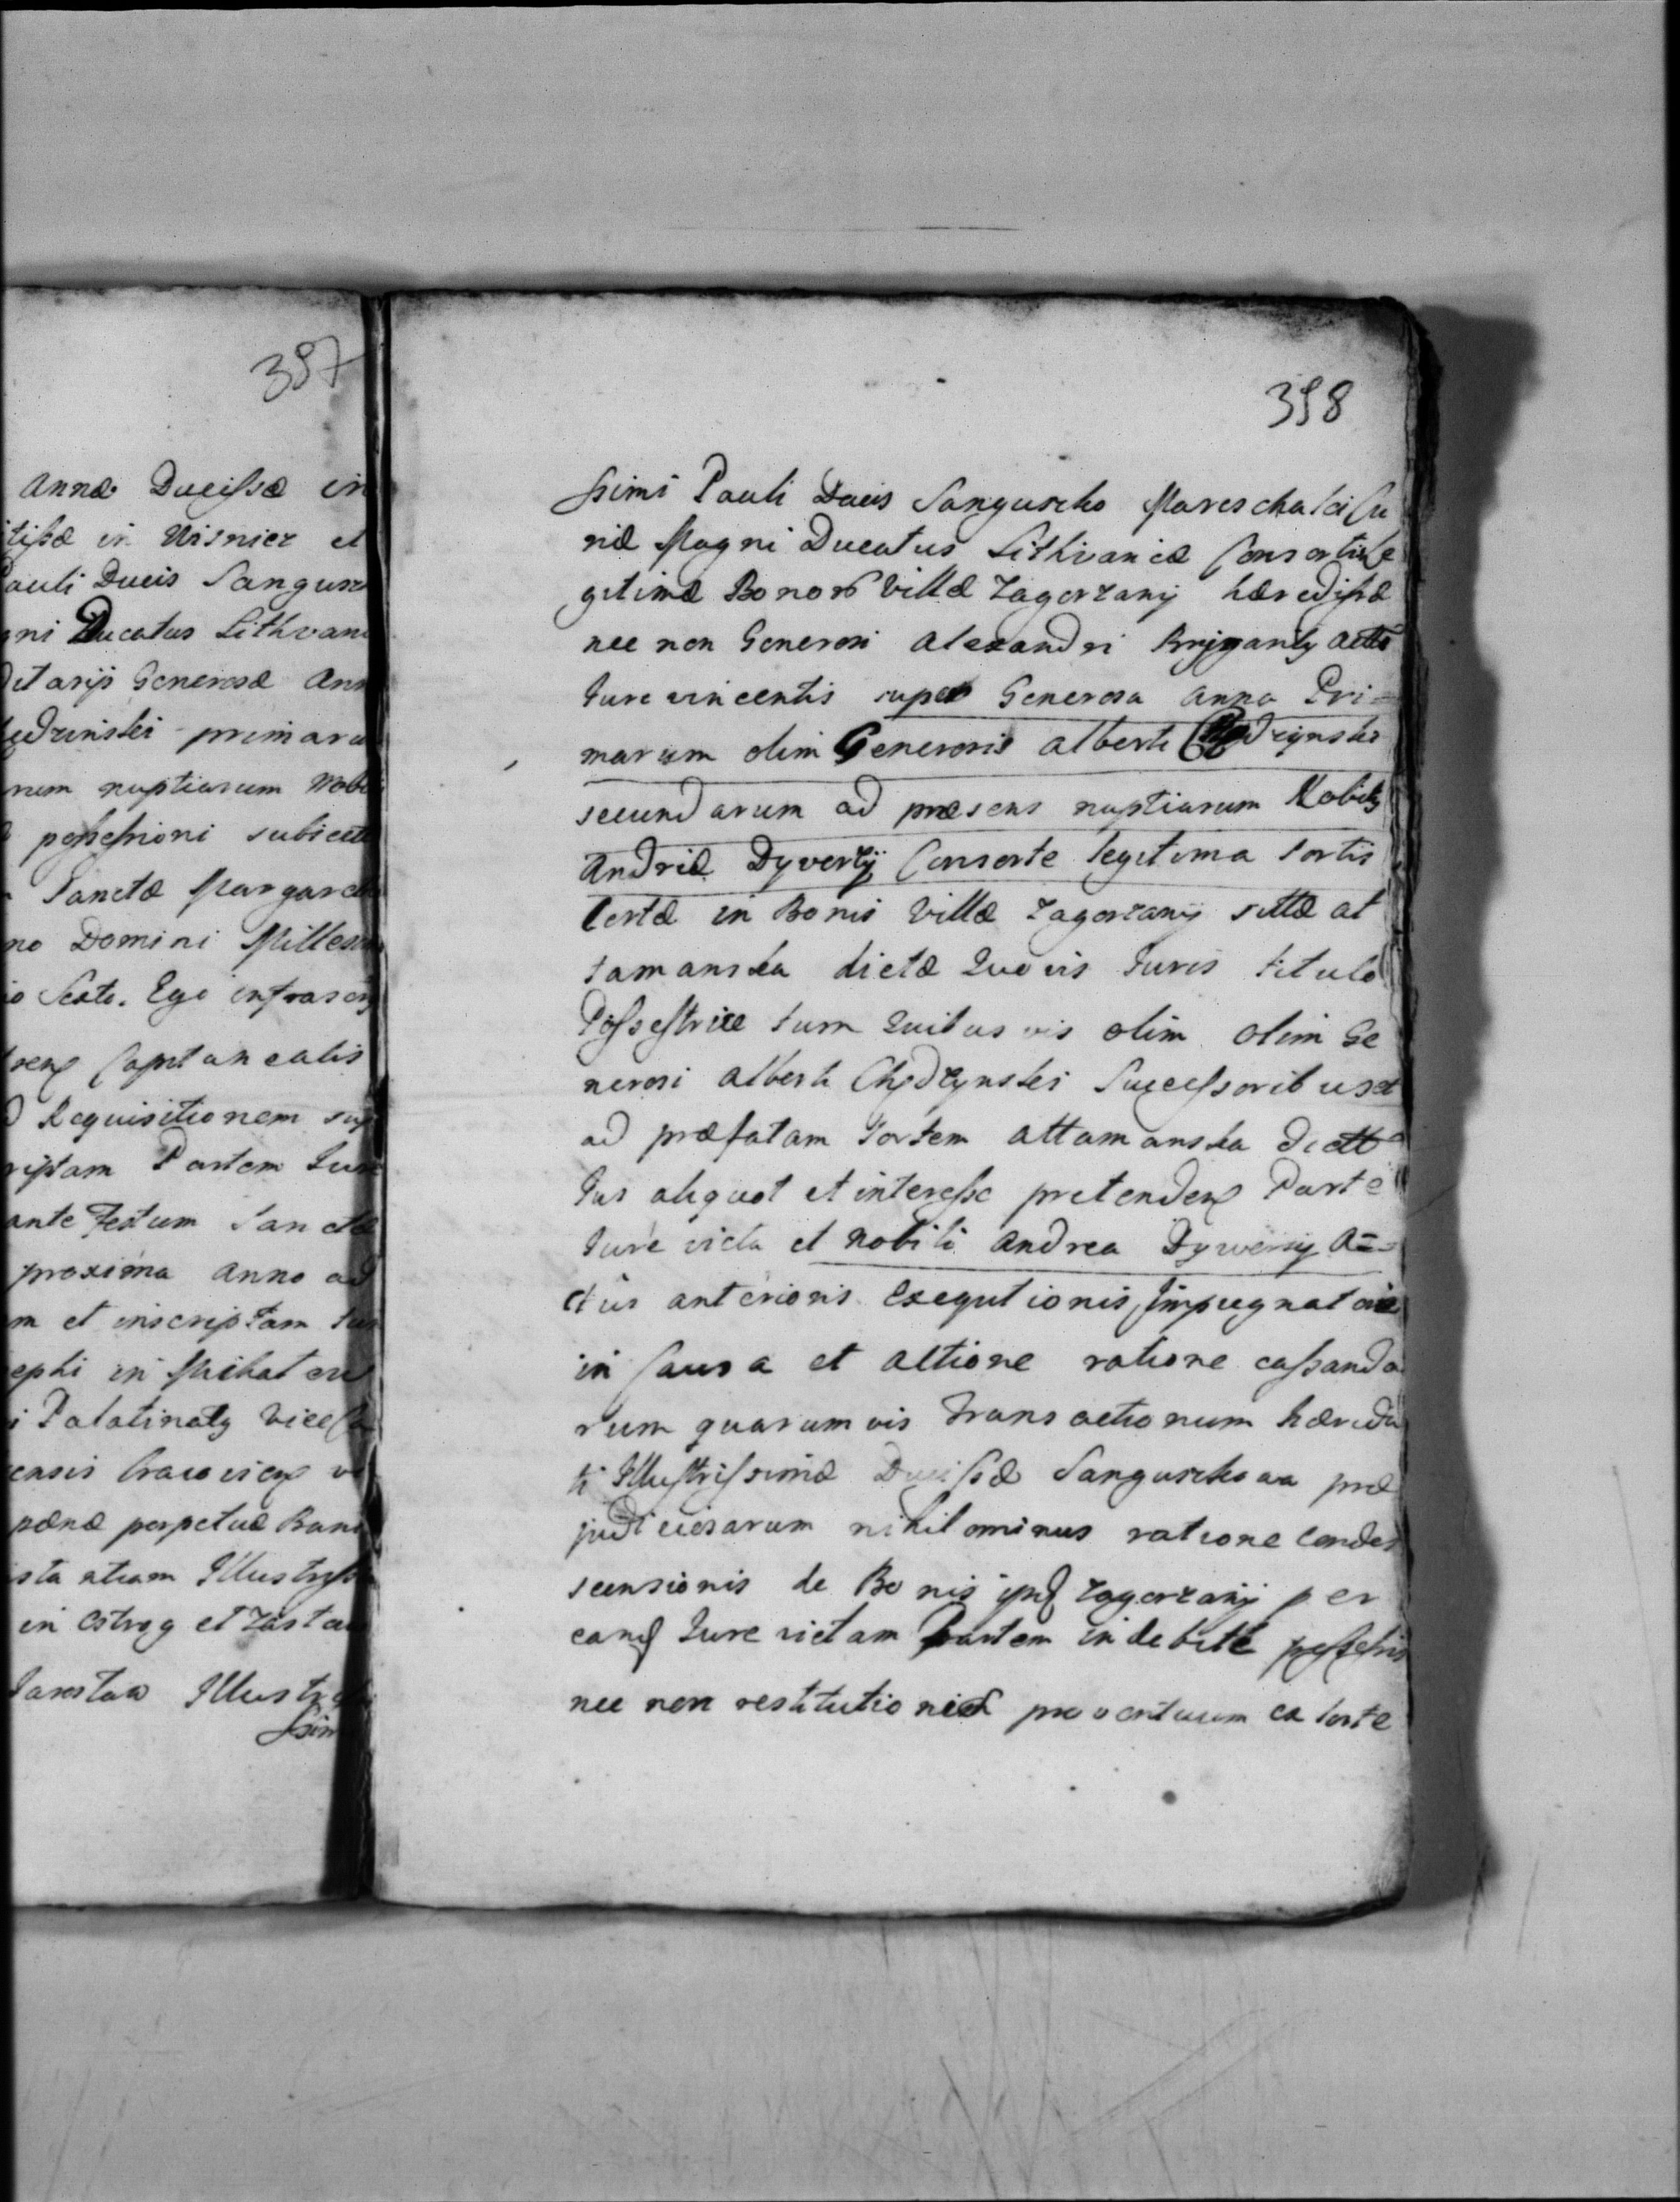 397
Annæ Ducissæ in
itissæ in Wisnicz et
Pauli Ducis Sangusz
gni Ducatus Lithvani
ditarij Generosæ Ann
primaru
rum nuptiarum Nobi
possessioni subiectæ
Sanctæ Margarethæ
no Domini Millesi
io Sexto. Ego infrascri
Capitanealis
d Requisitionem sup
riptam Partem Iure
ante Festum Sanctæ
proxima Anno ad
m et inscriptam Iur
ephi in
i Palatinatg
ensis Cracovien
pænæ perpetuæ Bani
sta ntiam Illustriss
in Ostrog et Zasław
Illustri
ssim
398
ssimi Pauli Ducis Sanguszko Mareschalci Cu
riæ Magni Ducatus Lithvaniæ Consortis le
gitimæ Bonor Villæ Zagorzany hæredissæ
nec non Generosi Alexandri
Iure vincentis super Generosa Anna Pri=
marum olim Generosis Alberti Chędzynski
secundarum ad præsens nuptiarum Nobilis
Andriæ Dyverij Consorte legitima Sortis
Certæ in Bonis Villæ Zagorzany sittæ at
tamanska dictæ Quovis Iuris titulo
Possestrice tum Quibus vis olim olim Ge
nerosi Alberti Chędzynski Successoribus et
ad præfatam Sortem attamanska dictæ
Ius aliquot et interesse pretenden Parte
Iure victa et Nobili Andrea Dywerij A=
ctus anterioris Exequtionis Impugnatorie
in Causa et Actione ratione cassanda
rum quarumvis Transactionum hæredi
ti Illustrissimæ Ducissæ Sanguszkowa præ
judiciosarum nihilominus ratione Condes
scensionis de Bonis ips Zagorzany per
eand Iure victam Partem indebite possessis
nec non restitutionis proventuum ex sorte